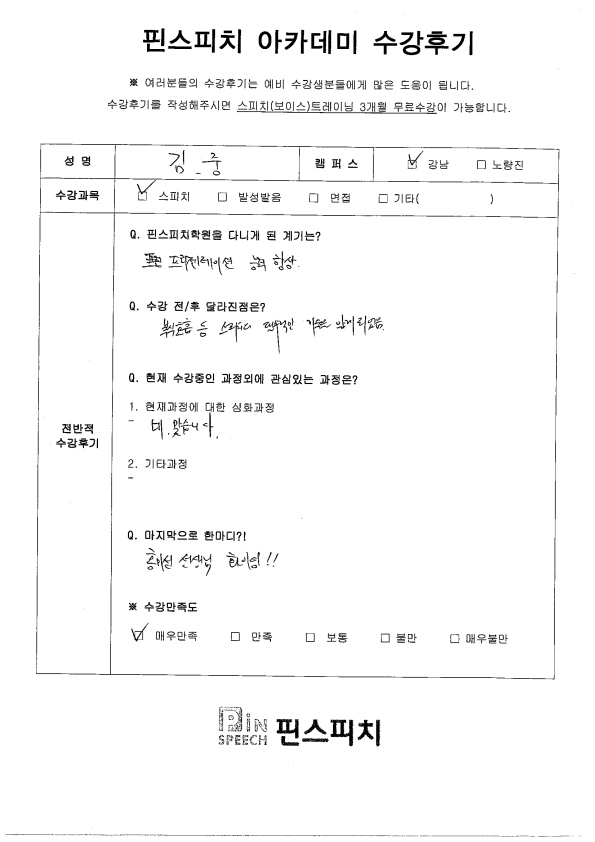 핀스피치 아카데미 수강후기
※ 여러분들의 수강후기는 예비 수강생분들에게 많은 도움이 됩니다.
수강후기를 작성해주시면 스피치(보이스)트레이닝 3개월 무료수강이 가능합니다.
성 명 김 중 캠 퍼 스 ☑ 강남 □ 노량진
수강과목 ☑ 스피치 □ 발성발음 □ 면접 □ 기타( )
전반적
수강후기
Q. 핀스피치학원을 다니게 된 계기는?
프레젠테이션 능력 향상.
Q. 수강 전/후 달라진점은?
복식호흡 등 스피치 전반적인 알게되었음.
Q. 현재 수강중인 과정외에 관심있는 과정은?
1. 현재과정에 대한 심화과정
- 네. 맞습니다.
2. 기타과정
-
Q. 마지막으로 한마디?!
선생님 화이팅!!
※ 수강만족도
☑ 매우만족 □ 만족 □ 보통 □ 불만 □ 매우불만
PiN SPEECH 핀스피치